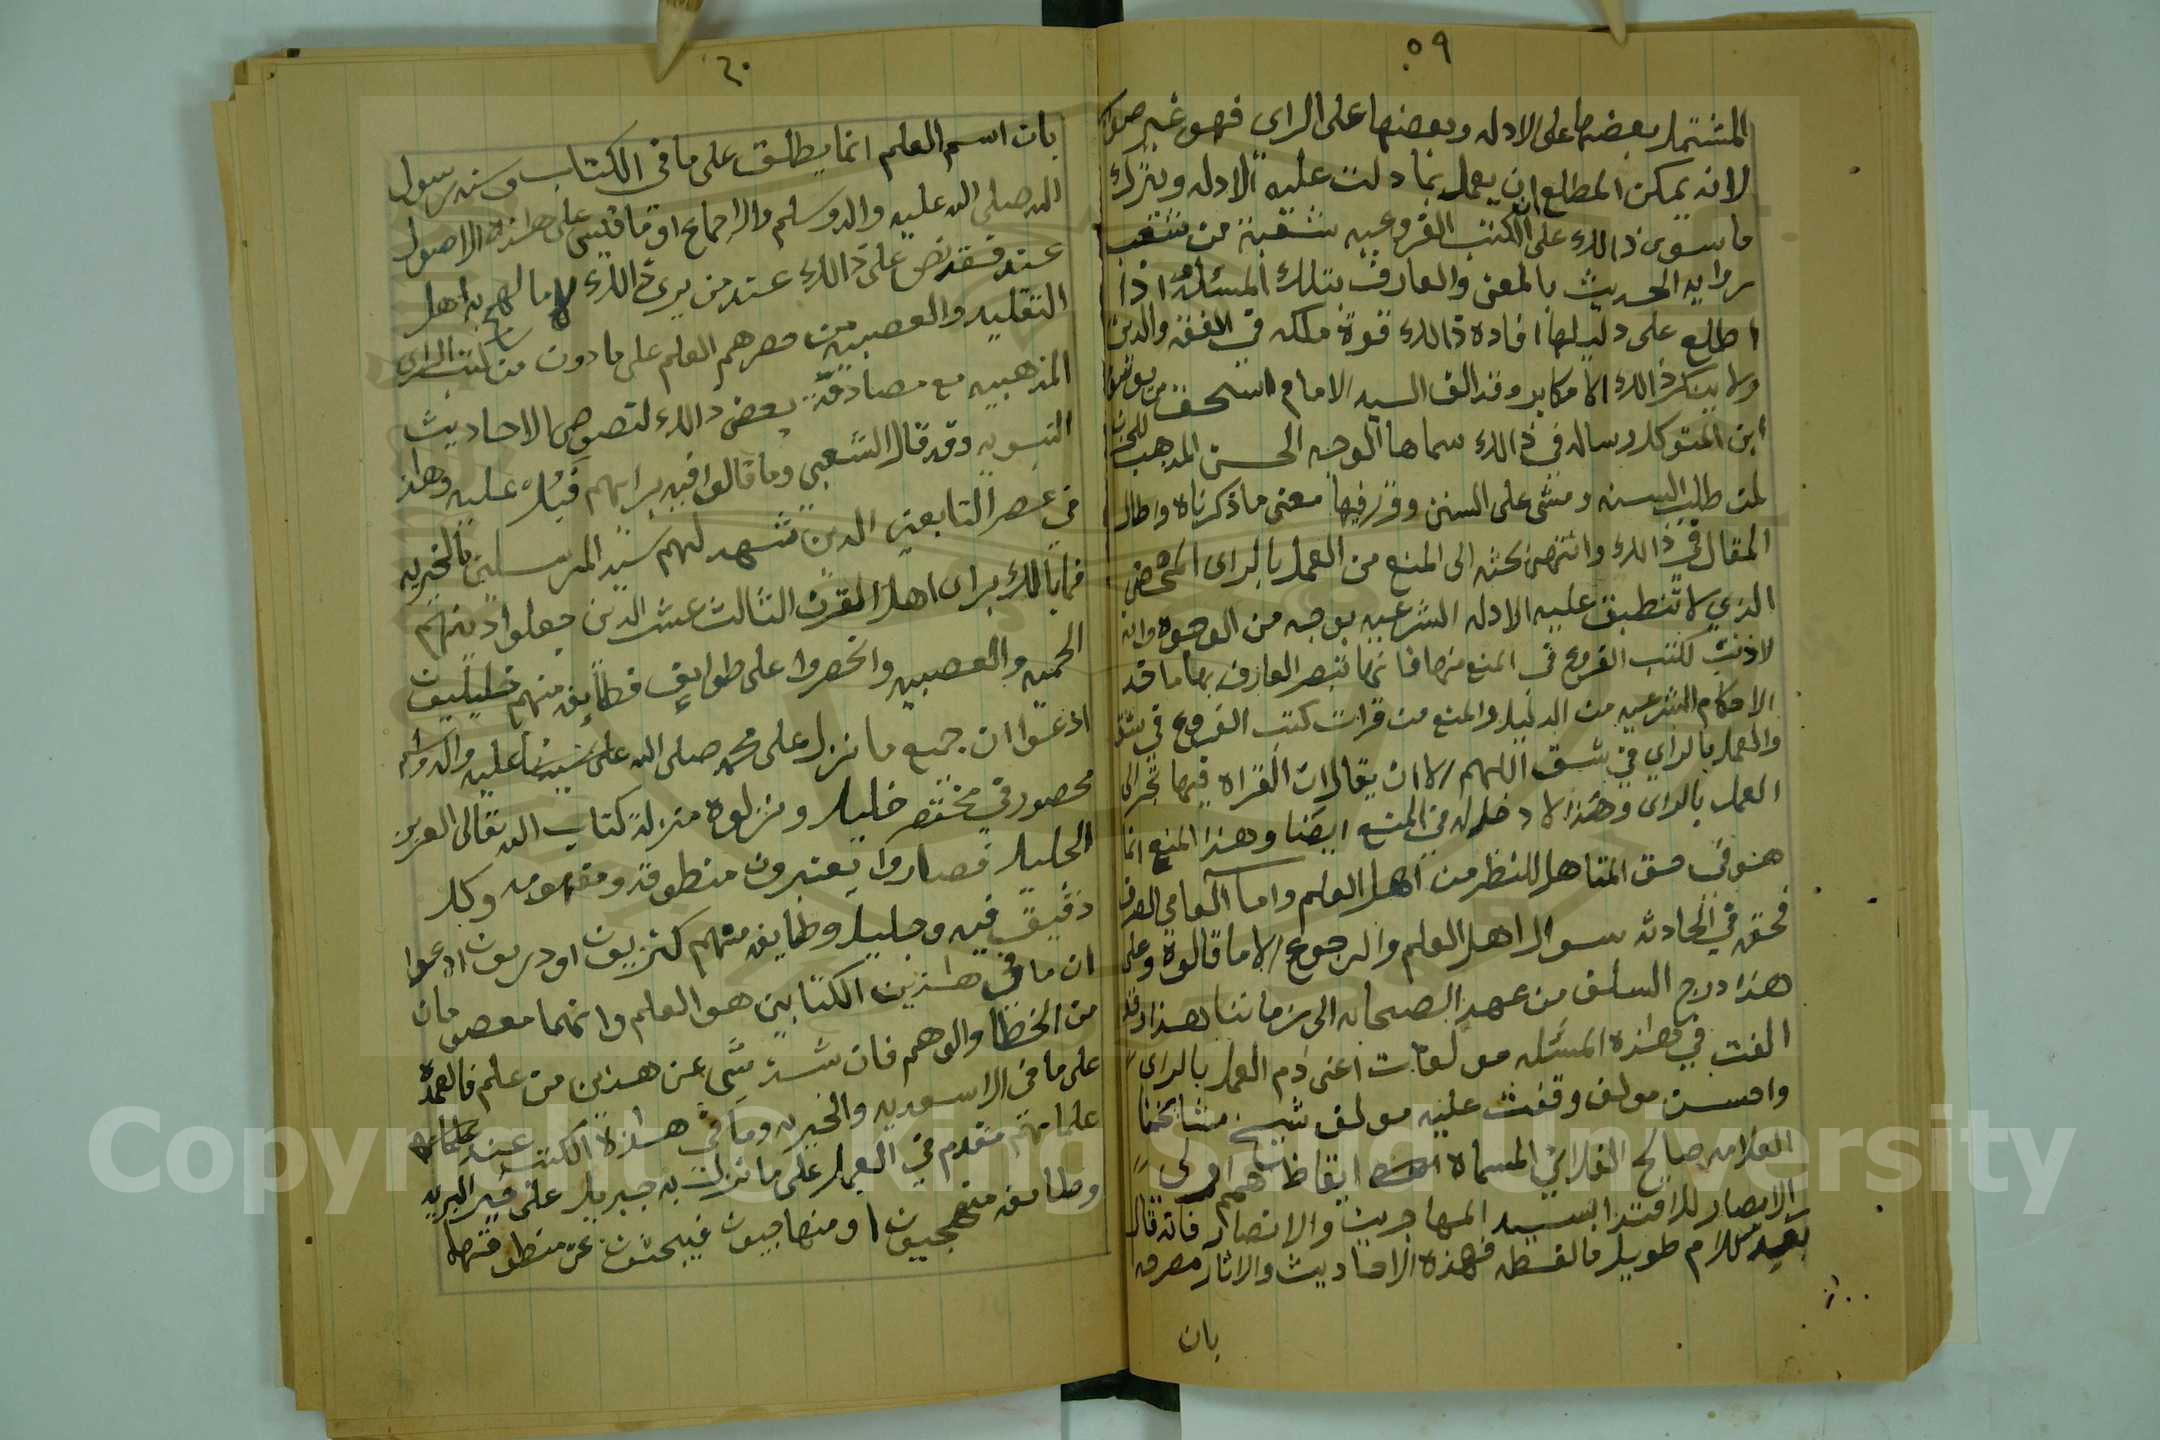 ٥٩
المشتمل بعضها على الادله وبعضها على الراي فهو غير صواب
لانه يمكن المطلع ان يعمل بما دلت عليه الادله ويترك
ما سوى ذالك على ان الكتب الفروعيه شعبة من شعب
روايه الحديث بالمعنى والعارف بتلك المسئله اذا
اطلع على دليلها افاده ذالك قوة ملكه في الفقه والدين
ولا ينكر ذالك الا مكابر وقد الف السيد الامام اسحق بن يوسف
ابن المتوكل رساله في ذالك سماها الوجه الحسن المذهب للحزن
لمن طلب السنه ومشى على السنن وقرر فيها معنى ما ذكرناه واطال
المقال في ذالك وانتهى بحثه الى المنع من العمل بالراى المحض
الذي لا تنطبق عليه الادله الشرعيه بوجه من الوجوه وانه
لا ذنب لكتب الفروع في المنع منها فانها تبصر العارف بها ماقد
الاحكام الشرعيه من الدليل والمنع من قرات كتب الفروع في شق
والعمل بالراي في شق اللهم الا ان يقال ان القراه فيها تجر الى
العمل بالراى وهذا لا دخل له في المنع ايضا وهذا المنع انما
هو في حق المتاهل للنظر من اهل العلم واما العامي الصرف
فحقه في الحادثه سوال اهل العلم والرجوع الا ما قالوه وعلى
هذا درج السلف من عهد الصحابه الى زماننا هذا وقد
الفت في هاذه المسئله مولفات اعنى ذم العمل بالراى
واحسن مولف وقفت عليه مولف شيخ مشائخنا
العلامه صالح الفلاني المسماة ايقاظ همم اولى
الابصار للاقتدا بسيد المهاجرين والانصار فانه قال
بعد كلام طويل مالفظه فهذه الاحاديث والاثار مصرحه
بان
٦٠
بان اسم العلم انما يطلق على ما في الكتاب وسنه رسول
الله صلى الله عليه واله وسلم والاجماع او ما قيس على هاذه الاصول
عند فقد نص على ذالك عند من يرى ذالك لا ما لهج به اهل
التقليد والعصبيه من حصرهم العلم على ما دون من كتب الراى
المذهبيه مع مصادقة بعض ذالك لنصوص الاحاديث
النبويه وقد قال الشعبي وما قالوا فيه برايهم فبل عليه وهاذا
في عصر التابعين الذين شهد لهم سيد المرسلين بالخيريه
فما بالك براى اهل القرن الثالث عشر الذين جعلوا دينهم
الحميه والعصبيه وانحصروا على طوايف فطايفه منهم خليليون
ادعوا ان جميع ما نزل على محمد صلى الله على سيدنا عليه واله وسلم
محصور في مختصر خليل ونزلوه منزلة كتاب الله تعالى العزيز
الجليل فصاروا يعتبرون منطوقه ومفهومه وكل
دقيق فيه وجليل وطايفه منهم كنزيون او دريون ادعوا
ان ما في هاذين الكتابين هو العلم وانهما معصومان
من الخطا والوهم فان شذ شي عن هذين من علم فالعمدة
على ما في الاسعديه والخيريه وما في هاذه الكتب عند علمايهم
علمائهم مقدم في العمل على ما نزل به جبريل على خير البريه
وطايفه منهجيون او منهاجيون فيبحثون عن منطوقهما